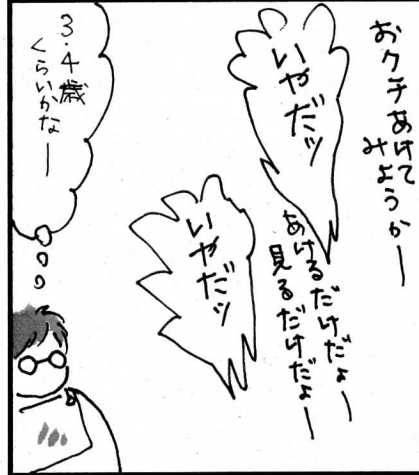 おクチあけて
みようかー
いやだッ
あけるだけだょー
見るだけだょー
いやだッ
3・4歳
くらいかなー